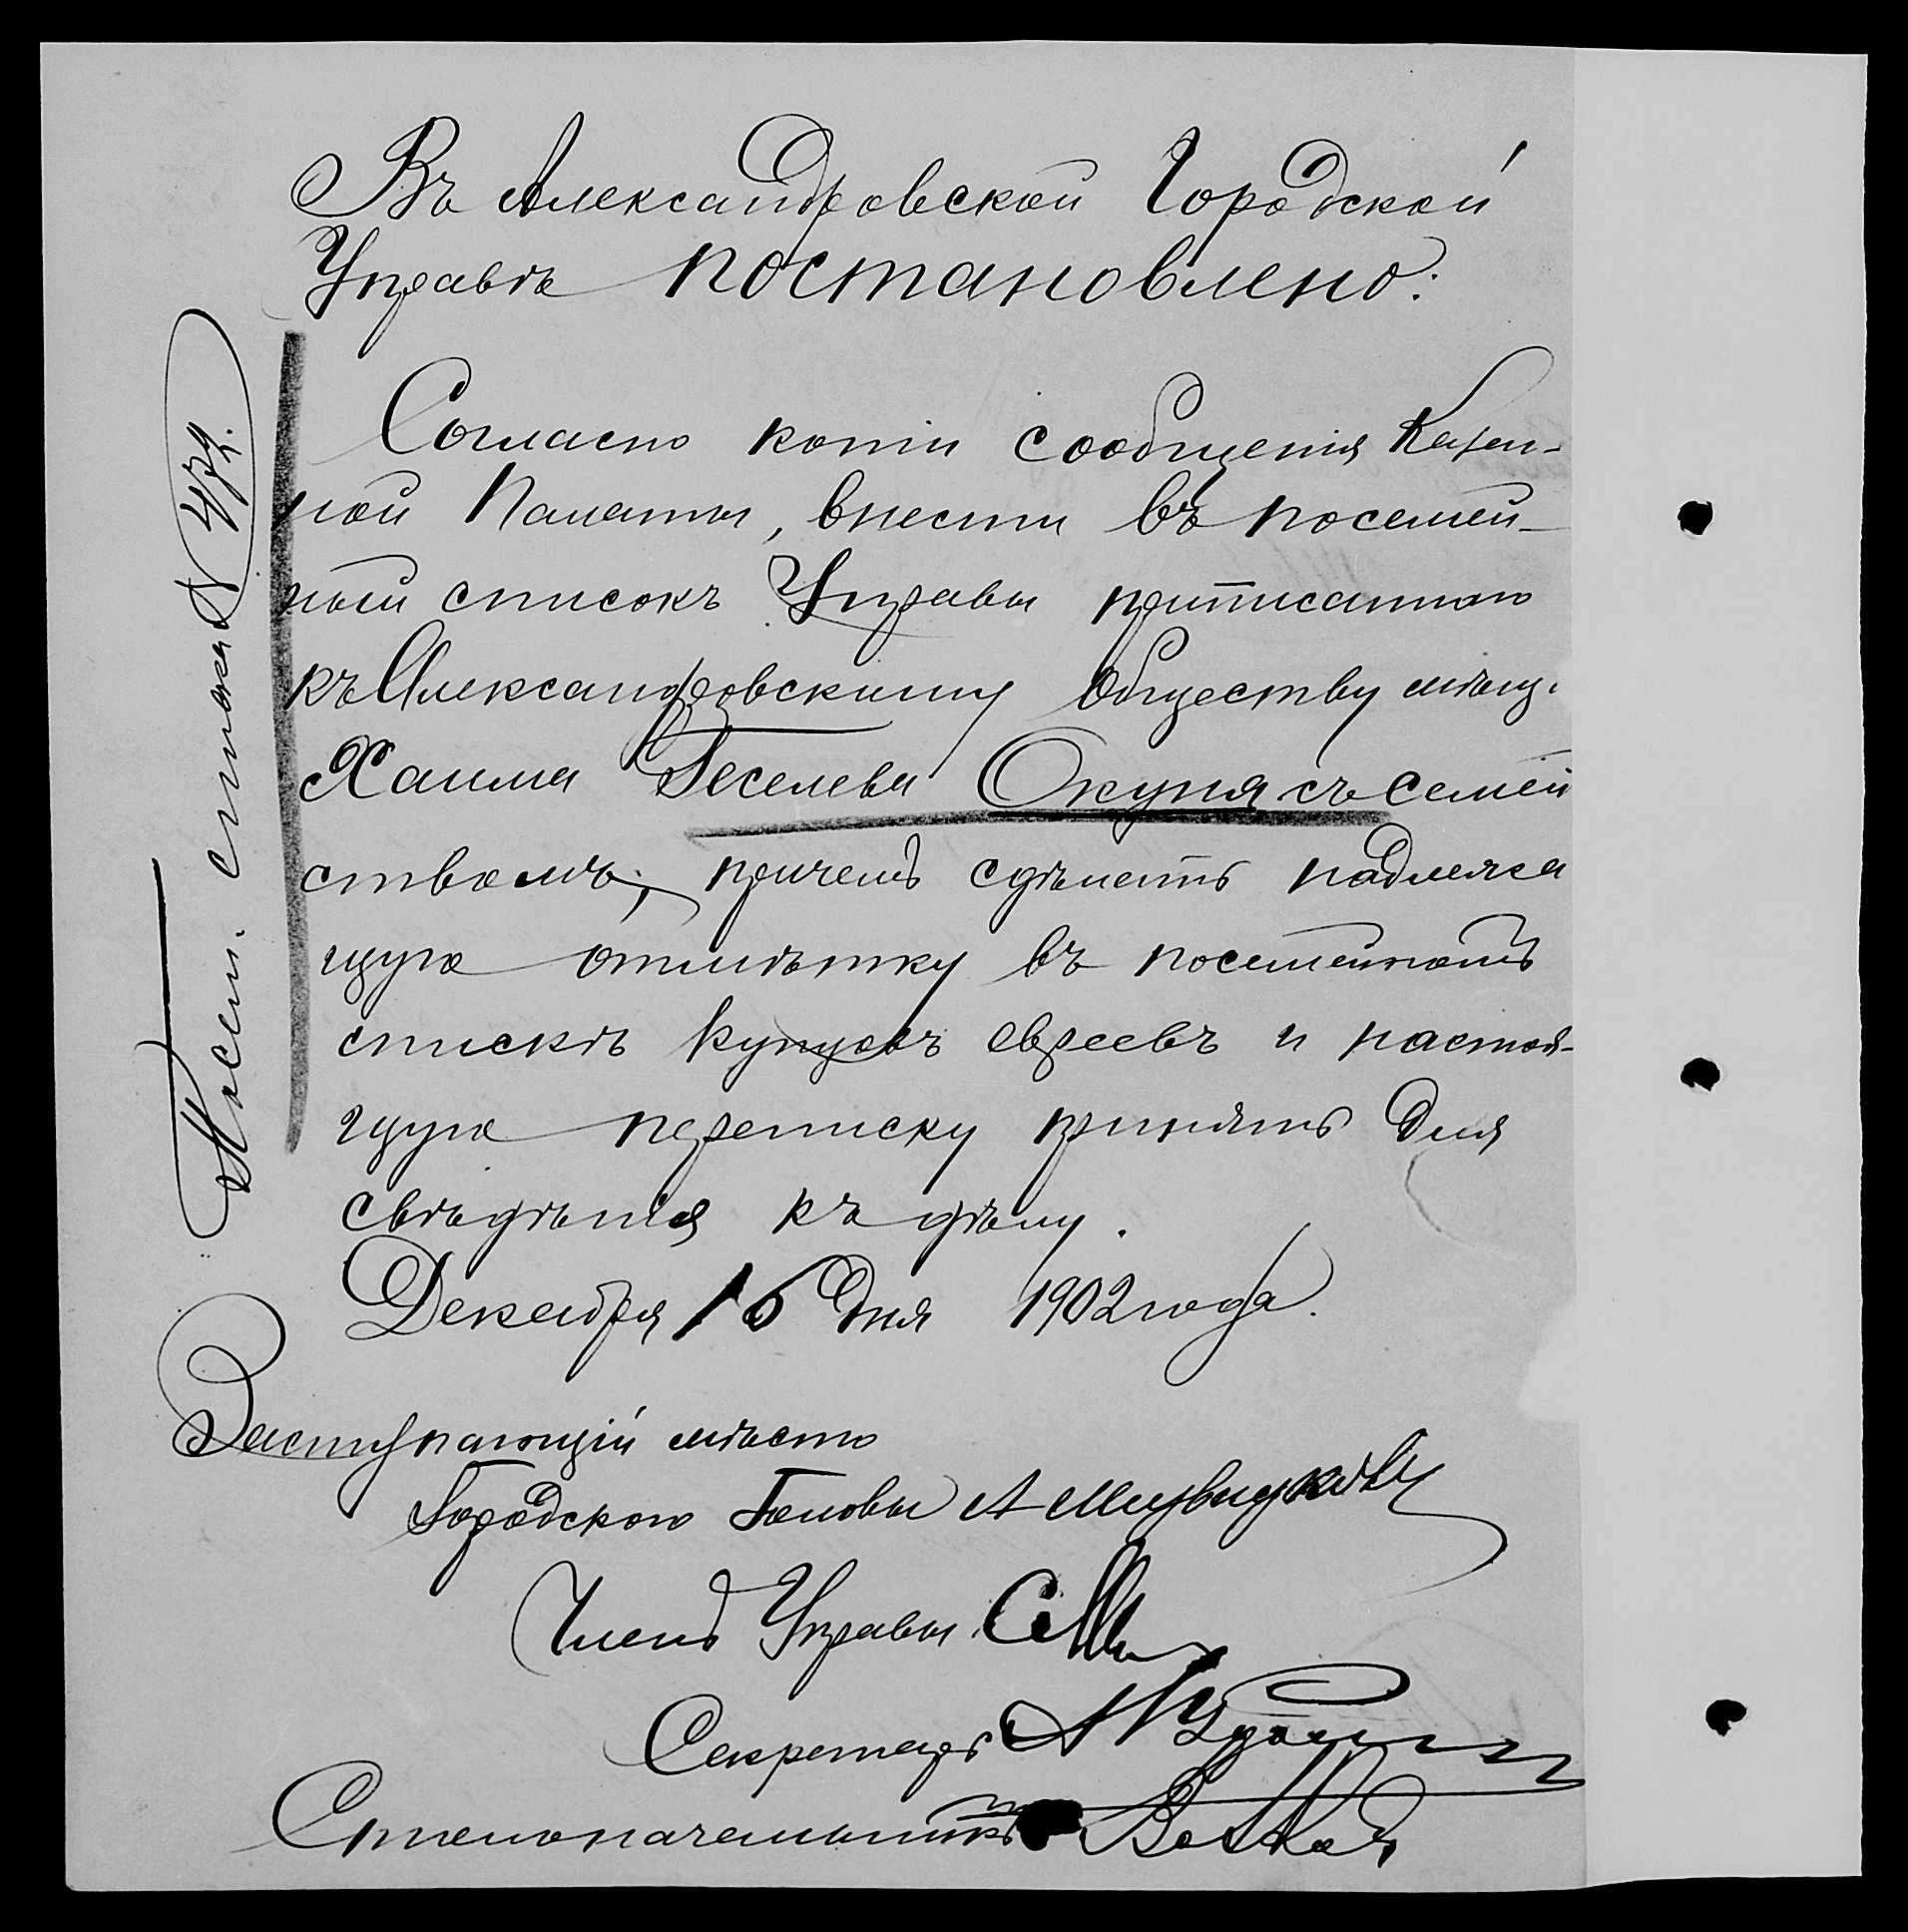 Въ Александровской Городской
Управѣ постановлено:
Согласно копіи сообщенія Казен-
ной Палаты, внести въ посемей-
ный списокъ Управы приписаннаго
къ Александровскому обществу мѣщ.
Хаима Іеселева Окуня съ семей
ствомъ, причемъ сдѣлать надлежа
щую отмѣтку въ посемейномъ
спискѣ купцовъ евреевъ и настоя-
щую переписку принять для
свѣдѣнія къ дѣлу.
Декабря 16 дня 1902 года.
Заступающій мѣсто
Городского Головы А
Членъ Управы
Секретарь
Столоначальникъ
Посем. списка № 472.